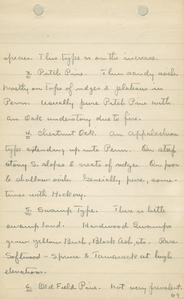 species. This type is on the increase.
3. Pitch Pine. Thin sandy soils
mostly on tops of ridges & plateaus in
Penn. Usually pure Pitch Pine with
an Oak understory due to fire.
4. Chestnut Oak. An appalachian
type extending up into Penn. On steep
stony S. slopes & crests of ridges. On poor
& shallow soils. Generally pure, some-
times with Hickory.
5. Swamp Type. This is little
swamp land. Hardwood Swamps
grow yellow Birch, Black Ash, etc. Rare
Softwood - Spruce & Tamarack at high
elevations.
6. Old Field Pine. Not very prevalent.